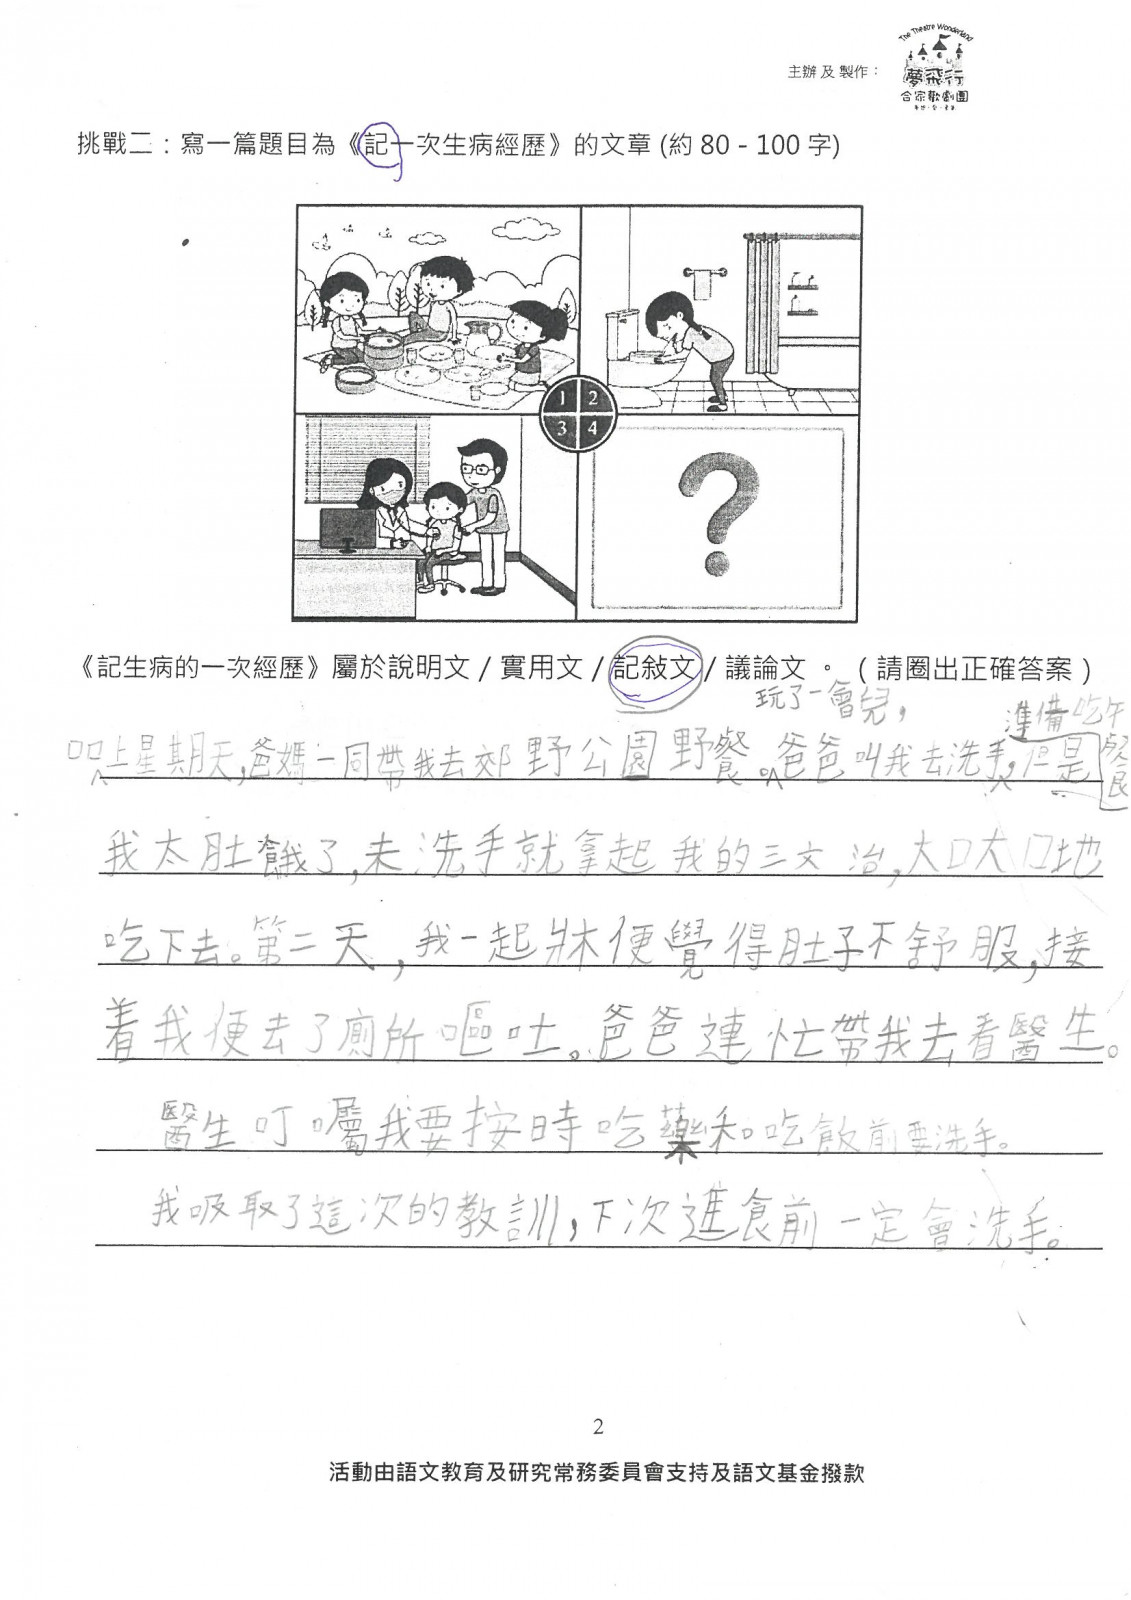 The Theatre Wonderland
主辦 及 製作：
夢飛行
合家歡劇團
挑戰二：寫一篇題目為《記一次生病經歷》的文章 (約 80 - 100 字)
1 2
3 4
?
《記生病的一次經歷》屬於說明文 / 實用文 / 記敍文 / 議論文 。 （ 請圈出正確答案 ）
玩了一會兒，
準備吃午餐
上星期天，爸媽一同帶我去郊野公園野餐。爸爸叫我去洗手，但是
我太肚餓了，未洗手就拿起我的三文治，大口大口地
吃下去。第二天，我一起牀便覺得肚子不舒服，接
着我便去了廁所嘔吐。爸爸連忙帶我去看醫生。
醫生叮囑我要按時吃藥和吃飯前要洗手。
我吸取了這次的教訓，下次進食前一定會洗手。
2
活動由語文教育及研究常務委員會支持及語文基金撥款